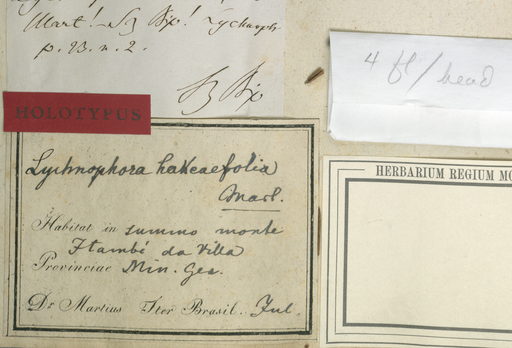 Mart! Sz Bip! Lychnoph.
p. 23. n. 2.
Sz Bip
4 fl/head
HOLOTYPUS
Lychnophora hakeaefolia
Mart.
Habitat in summo monte
Itambé da Villa
Provinciae Min. Ger.
Dr Martius Iter Brasil. Jul.
HERBARIUM REGIUM MO